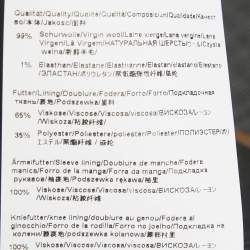 Qualität/Quality/Qualité/Qualita/Composition/Qualidade/Качест
во/本体/Jakość/面料
99% Schurwolle/Virgin wool/Laine vierge/Lana vergine/Lana
Virgen/Lã Virgem/НАТУРАЛЬНАЯ ШЕРСТЬ/ウール/Czysta
wełna/新剪羊毛/
1% Elasthan/Elastane/Elasthanne/Elastan/Elastano/Elastano
/ЭЛАСТАН/ポリウレタン/聚氨酯弹性纤维/氨纶
Futter/Lining/Doublure/Fodera/Forro/Forro/Подкладочная
ткань/裏地/Podszewka/里料
65% Viskose/Viscose/viscose/viscosa/viscosa/ВИСКОЗА/レーヨン
/Wiskoza/粘胶纤维
35% Polyester/Polyester/poliestere/poliester/ПОЛИЭСТЕР/ポリ
エステル/聚酯纤维
Ärmelfutter/Sleeve lining/Doublure de manche/Fodera
manica/Forro de la manga/Forro da manga/Подкладка
рукава/袖裏地/Podszewka rękawa/袖里
100% Viskose/Viscose/Viscose/viscosa/viscosa/ВИСКОЗА/レーヨン
/Wiskoza/粘胶纤维
Kniefutter/knee lining/doublure au genou/Fodera al
ginocchio/Forro de la rodilla/Forro no joelho/Подкладка на
колени/膝裏地/podszewka kolanowa/膝部衬里
100% Viskose/Viscose/Viscose/viscosa/viscosa/ВИСКОЗА/レーヨン